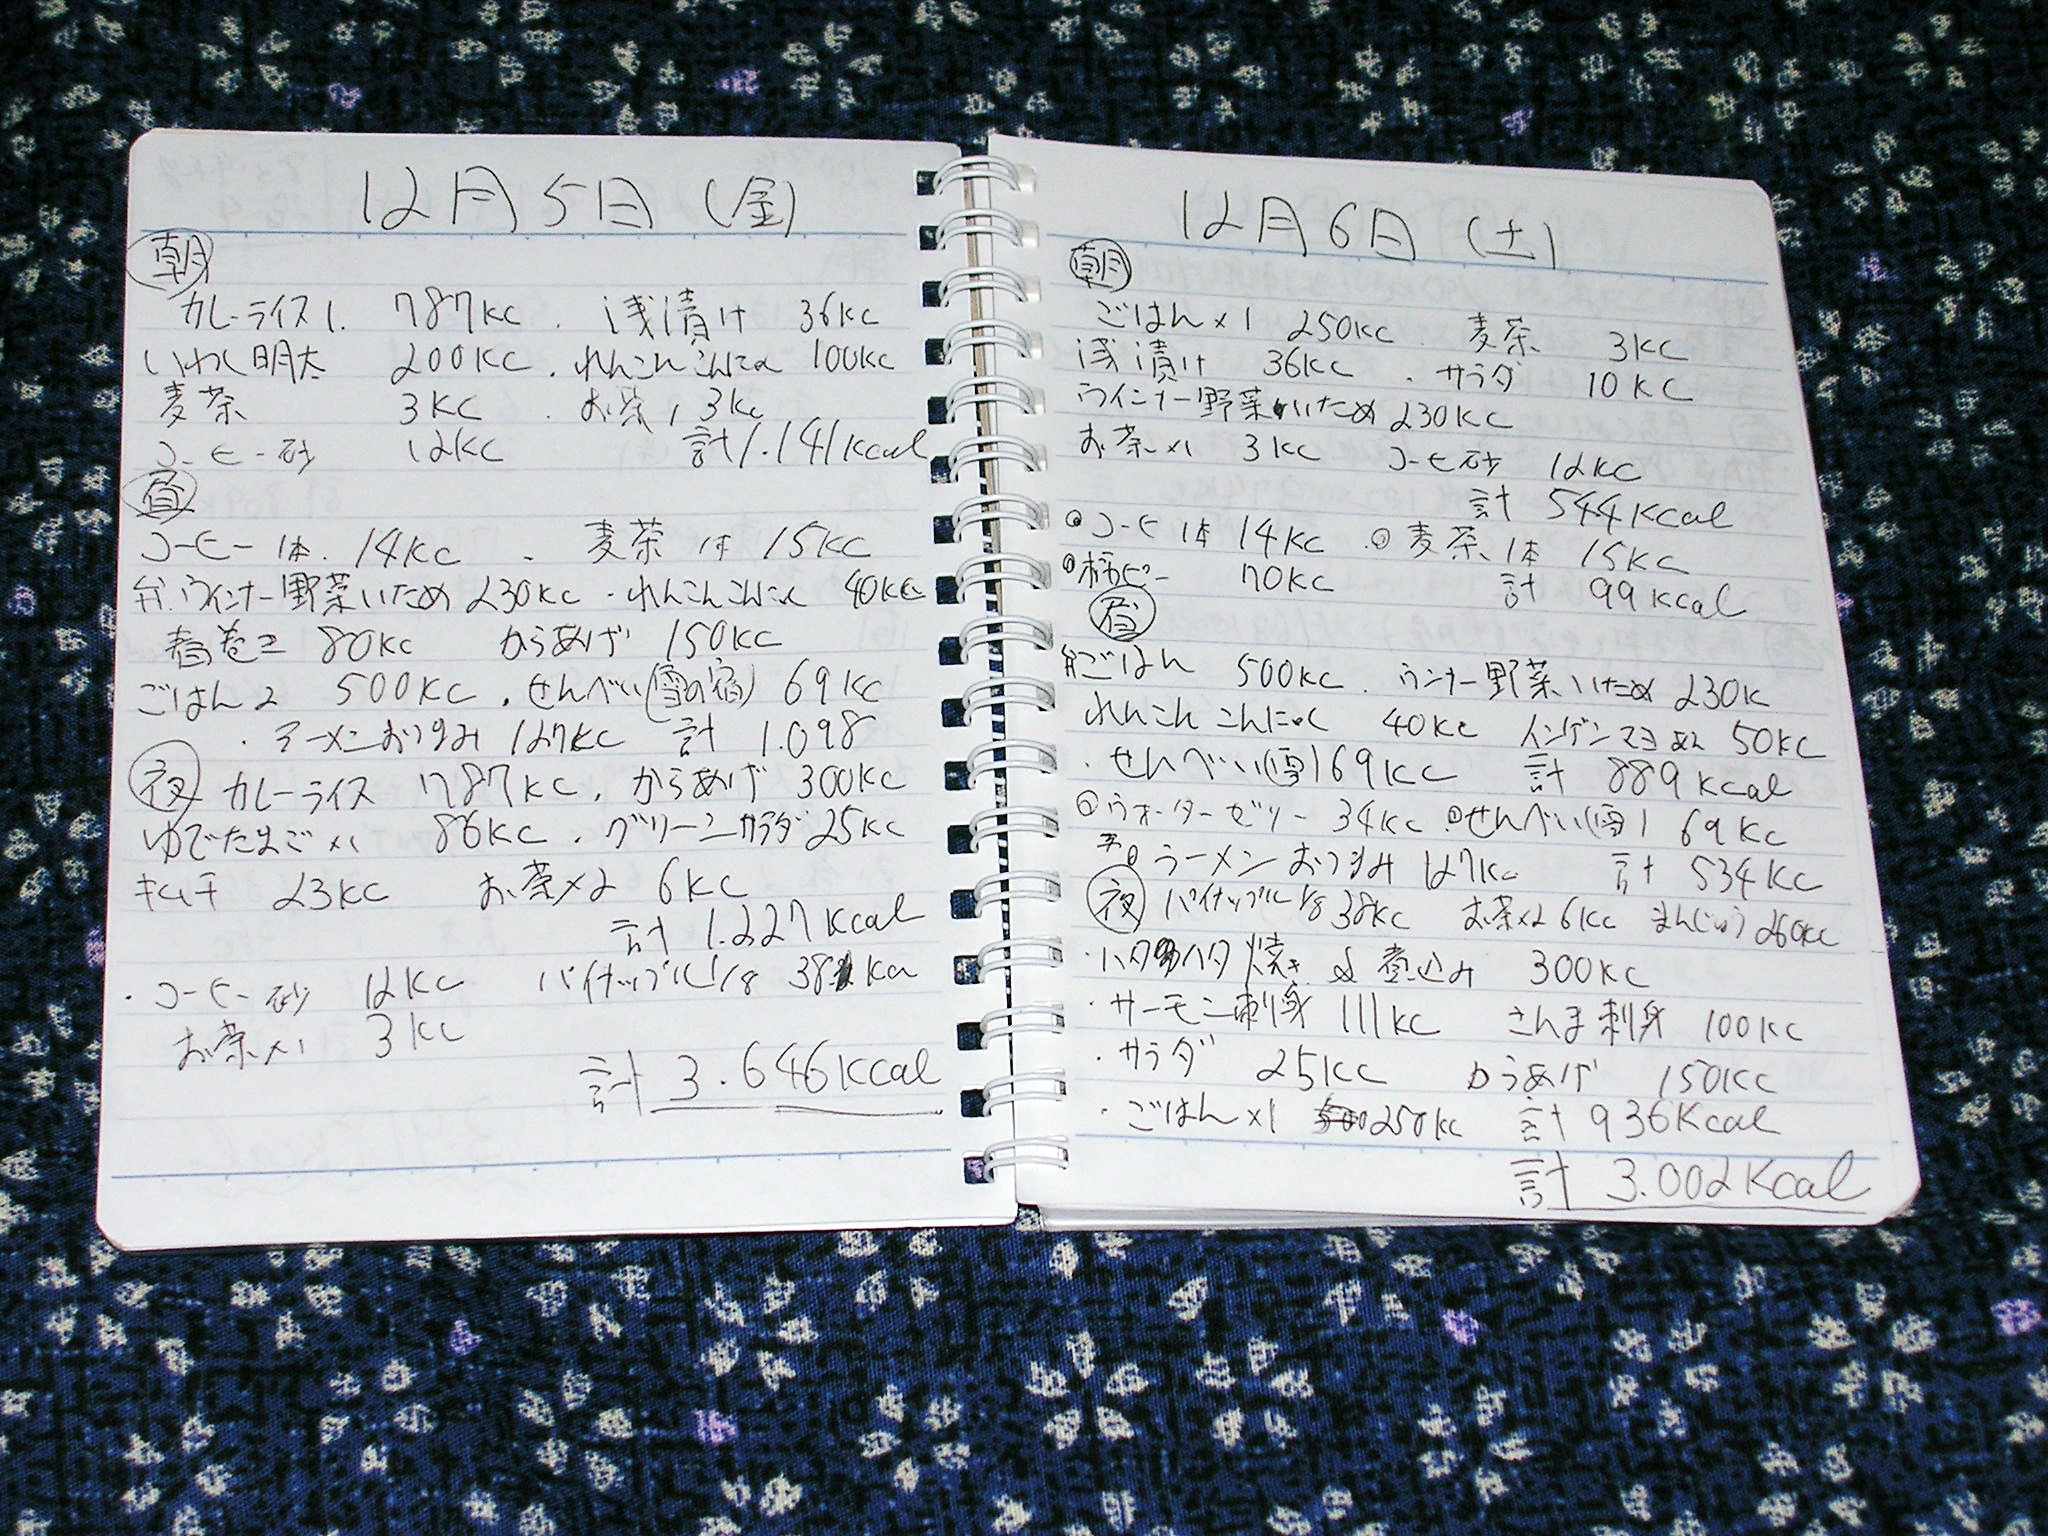 12月5日(金)
朝
カレーライス1. 787KC . 浅漬け 36KC
いわし明太 200KC . れんこんこんにゃく 100KC
麦茶 3KC . お茶1 3KC
コーヒー砂 12KC 計1.141Kcal
昼
コーヒー1本. 14KC . 麦茶1本 15KC
弁.ウインナー野菜いため 230KC . れんこんこんにゃく 40KC
春巻2 80KC からあげ 150KC
ごはん2 500KC . せんべい(雪の宿) 69KC
・ラーメンおつまみ 127KC 計 1.098
夜 カレーライス 787KC. からあげ 300KC
ゆでたまご×1 86KC . グリーンサラダ 25KC
キムチ 23KC お茶×2 6KC
計 1.227Kcal
・コーヒー砂 12KC パイナップル1/8 38Kca
お茶×1 3KC
計 3.646Kcal
12月6日(土)
朝
ごはん×1 250KC . 麦茶 3KC
浅漬け 36KC . サラダ 10KC
ウインナー野菜いため 230KC
お茶×1 3KC コーヒ砂 12KC
計 544Kcal
コーヒ1本 14KC . 麦茶1本 15KC
柿ピー 70KC 計 99Kcal
昼
弁ごはん 500KC . ウンナー野菜いため 230K
れんこんこんにゃく 40KC インゲンマヨあえ 50KC
・せんべい(雪) 69KC 計 889Kcal
ウォーターゼリー 34KC せんべい(雪) 69KC
ラーメンおつまみ 127KC 計 534KC
夜 パイナップル1/8 38KC お茶×2 6KC まんじゅう 260KC
・ハタハタ焼き&煮込み 300KC
・サーモン刺身 111KC さんま刺身 100KC
・サラダ 25KC からあげ 150KC
・ごはん×1 250KC 計 936Kcal
計 3.002Kcal